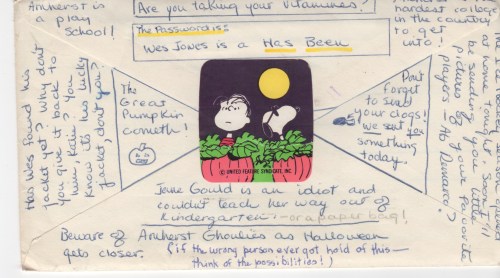 Amherst is
a play
School!
Are you taking your vitamines?
The Password is:
Wes Jones is a Has Been
hardest college
in the country
to get
into!
Has Wes found his
jacket yet? Why don't
you give it back to
him Kelli? You
Know it's his lucky
Jacket don't you?
The
Great
Pumpkin
cometh!
© UNITED FEATURE SYNDICATE, INC
Don't
forget
to send
your clogs!
we sent you
something
today.
at home tonight. Soon I'll
be sending you little
pictures of your favorite
players - Ab Dunaro?
Jane Gould is an idiot and
couldn't teach her way out of
kindergarten - or a paper bag!
Beware of Amherst Ghoulies as Halloween
gets closer.
(if the wrong person ever got hold of this—
think of the possibilities!)